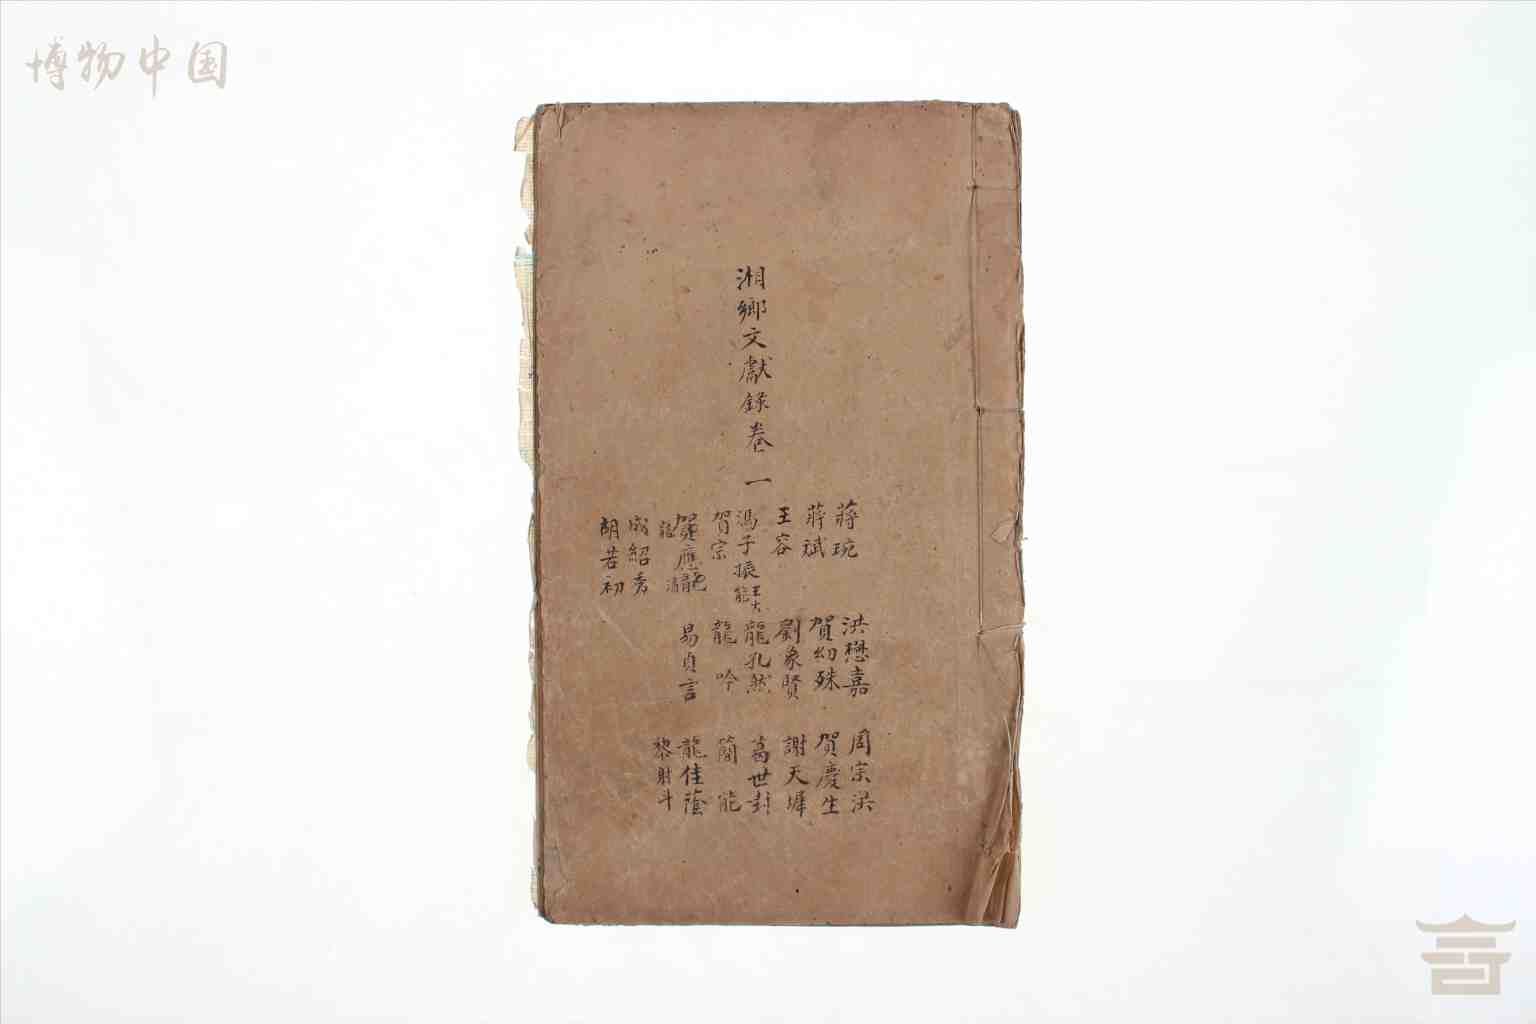 博物中国
湘鄉文獻錄卷一
蔣琬
蔣斌
王容
馮子振
王大
能
賀宗
賀應龍
龍
成紹秀
胡若初
洪懋嘉
賀幼殊
劉象賢
龍孔然
龍吟
易貞言
周宗洪
賀慶生
謝天墀
葛世封
簡能
龍佳蔭
黎射斗